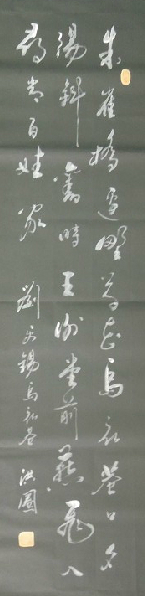 朱雀橋邊野草花烏衣巷口夕
陽斜舊時王謝堂前燕飛入
尋常百姓家 劉禹錫烏衣巷 洪